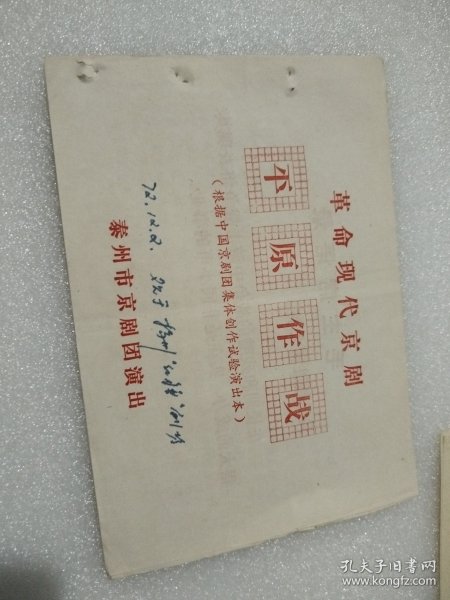 革命现代京剧
平原作战
（根据中国京剧团集体创作试验演出本）
72.12.2.
泰州市京剧团演出
孔夫子旧书网
www.kongfz.com